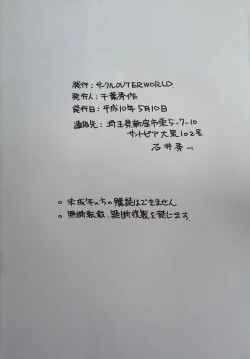 発行:サークルOUTERWORLD
発行人:千葉秀作
発行日:平成10年5月10日
連絡先:埼玉県新座市栄5-7-10
サントピア大泉102号
石井秀一
○ 未成年の方の購読はできません
○ 無断転載、無断複製を禁じます。